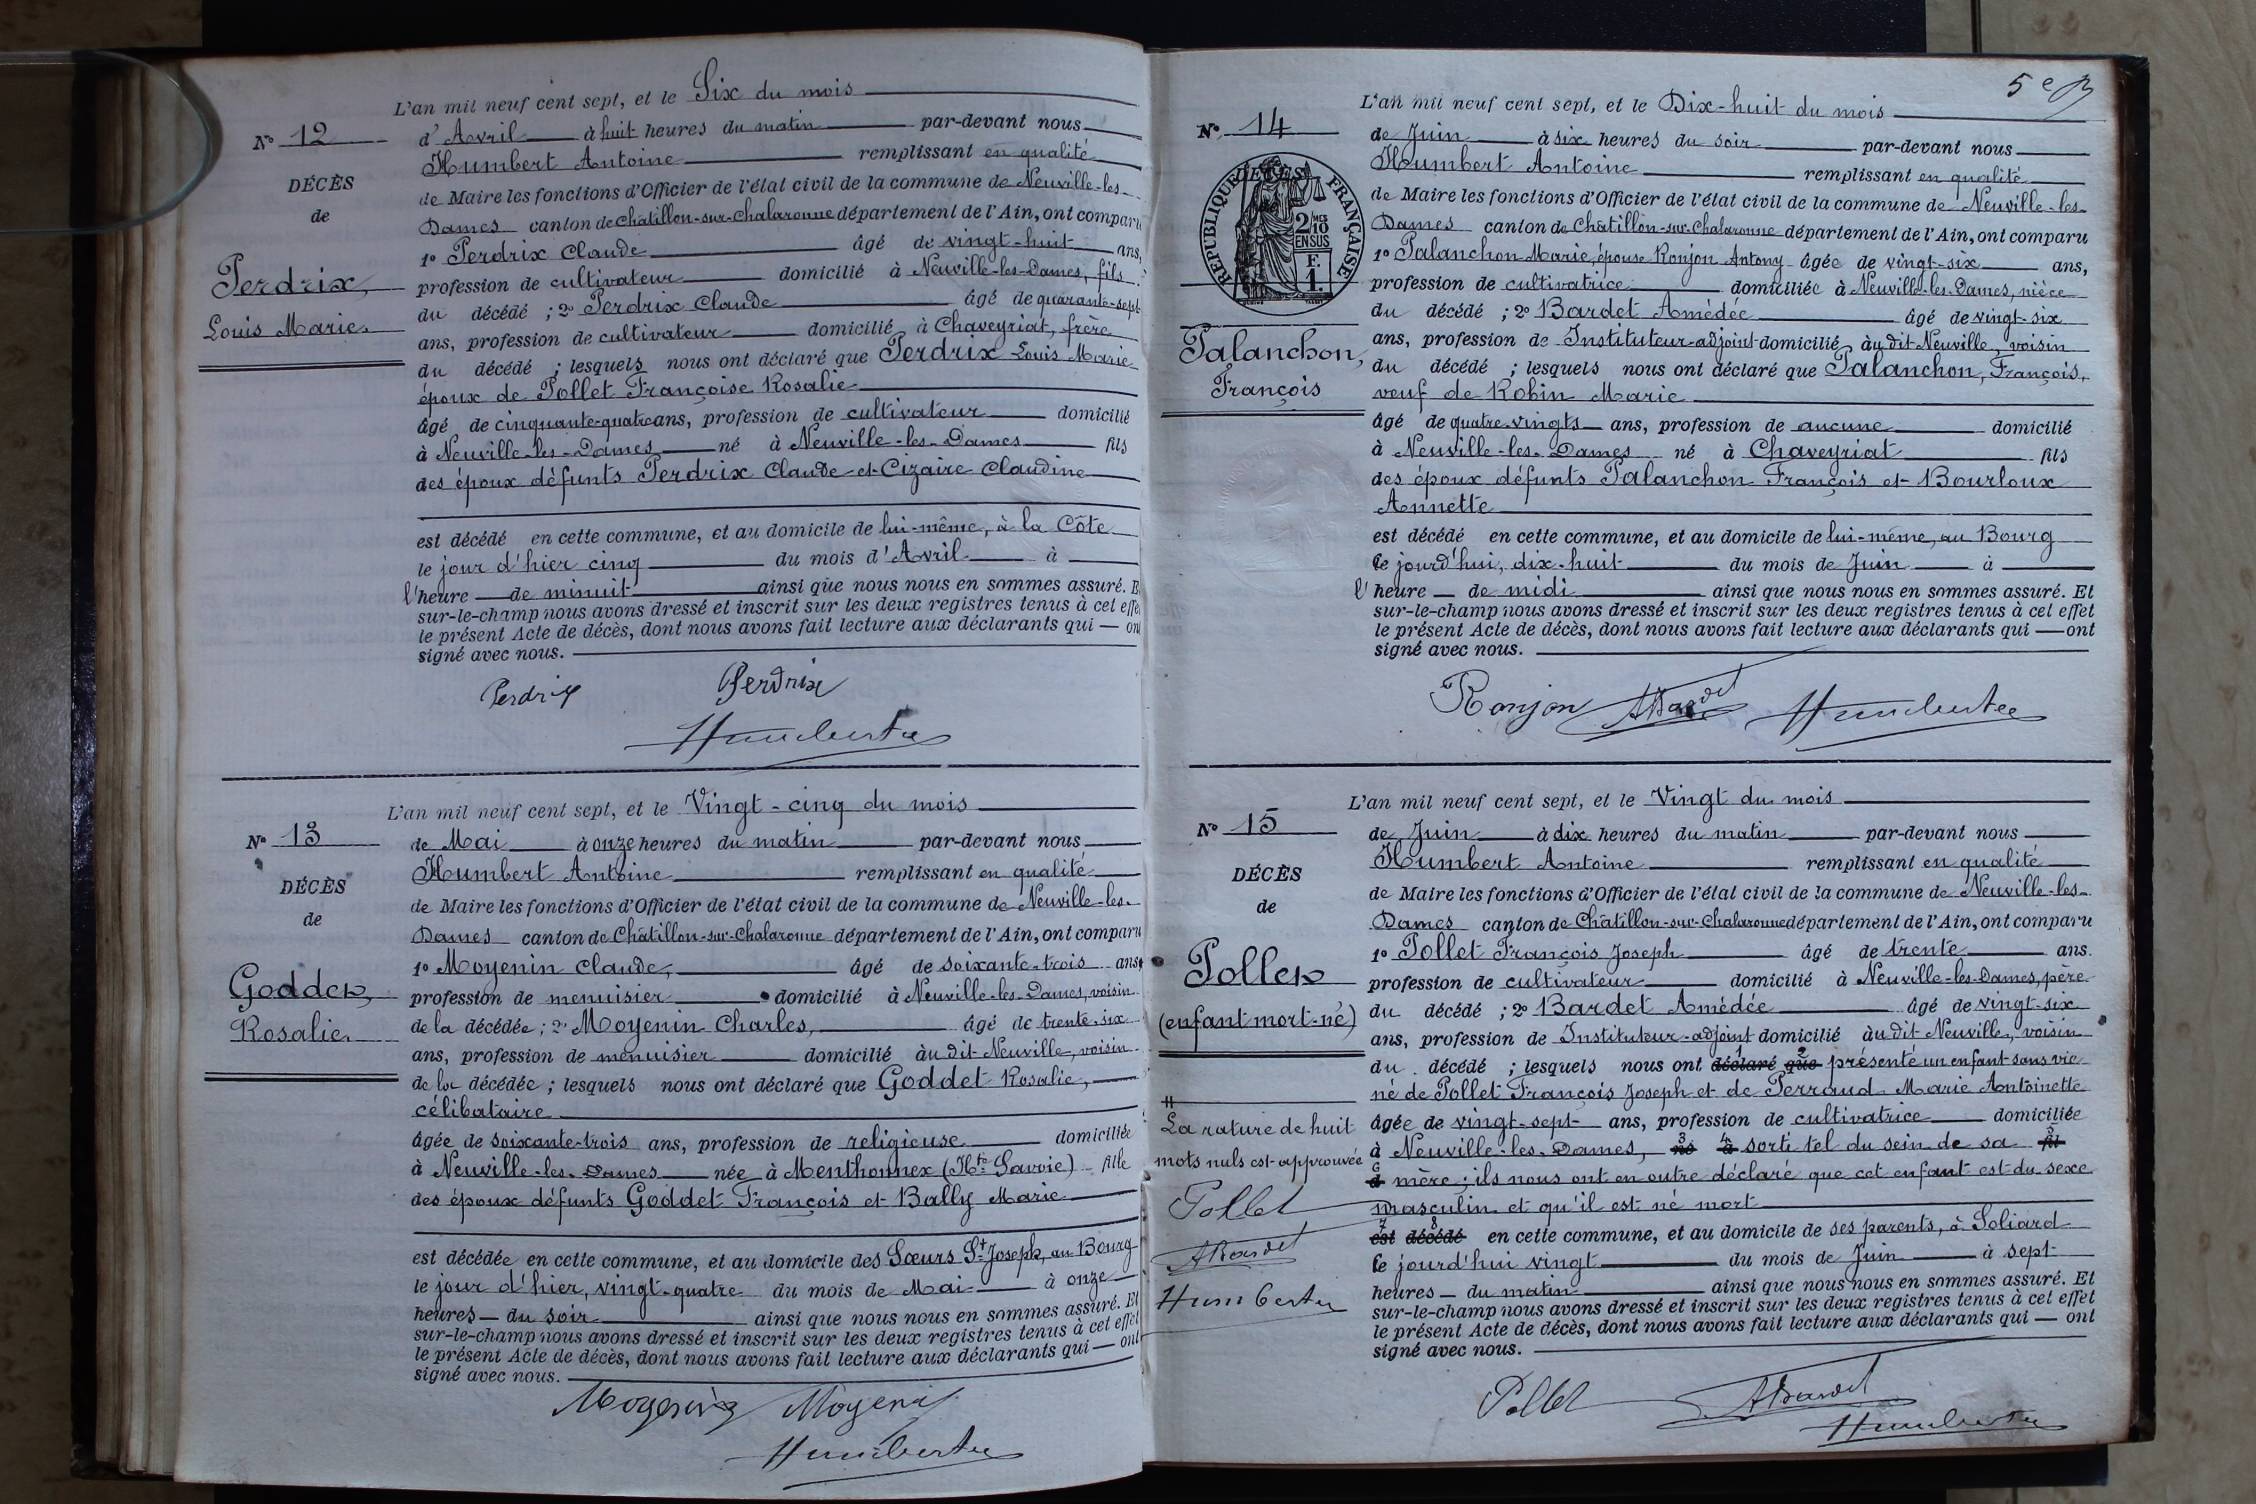 L'an mil neuf cent sept, et le Six du mois
N° 12
d'Avril à huit heures du matin par-devant nous
Humbert Antoine remplissant en qualité
DÉCÈS
de Maire les fonctions d'Officier de l'état civil de la commune de Neuville-les-
de
Dames canton de Châtillon-sur-Chalaronne département de l'Ain, ont comparu
1° Perdrix Claude âgé de vingt-huit ans,
Perdrix,
profession de cultivateur domicilié à Neuville-les-Dames, fils
du décédé ; 2° Perdrix Claude âgé de quarante-sept
Louis Marie.
ans, profession de cultivateur domicilié à Chaveyriat, frère
du décédé ; lesquels nous ont déclaré que Perdrix Louis Marie
époux de Pollet Françoise Rosalie
âgé de cinquante-quatre ans, profession de cultivateur domicilié
à Neuville-les-Dames né à Neuville-les-Dames fils
des époux défunts Perdrix Claude et Cizaire Claudine
est décédé en cette commune, et au domicile de lui-même, à la Côte
le jour d'hier cinq du mois d'Avril à
l'heure de minuit ainsi que nous nous en sommes assuré. E
sur-le-champ nous avons dressé et inscrit sur les deux registres tenus à cet effe
le présent Acte de décès, dont nous avons fait lecture aux déclarants qui — on
signé avec nous.
Perdrix Perdrix
Humbert
L'an mil neuf cent sept, et le Vingt-cinq du mois
N° 13
de Mai à onze heures du matin par-devant nous
Humbert Antoine remplissant en qualité
DÉCÈS
de Maire les fonctions d'Officier de l'état civil de la commune de Neuville-les-
de
Dames canton de Châtillon-sur-Chalaronne département de l'Ain, ont comparu
1° Moyenin Claude, âgé de soixante-trois ans
Goddet,
profession de menuisier domicilié à Neuville-les-Dames, voisin
Rosalie.
de la décédée ; 2° Moyenin Charles, âgé de trente-six
ans, profession de menuisier domicilié àudit Neuville, voisin
de la décédée ; lesquels nous ont déclaré que Goddet Rosalie,
célibataire
âgée de soixante-trois ans, profession de religieuse domiciliée
à Neuville-les-Dames née à Menthonnex (Hte Savoie) fille
des époux défunts Goddet François et Bally Marie
est décédée en cette commune, et au domicile des Sœurs St Joseph, au Bourg
le jour d'hier, vingt-quatre du mois de Mai à onze
heures — du soir ainsi que nous nous en sommes assuré. Et
sur-le-champ nous avons dressé et inscrit sur les deux registres tenus à cet effet
le présent Acte de décès, dont nous avons fait lecture aux déclarants qui — ont
signé avec nous.
Moyenin Moyenin
Humbert
5e
L'an mil neuf cent sept, et le Dix-huit du mois
N° 14
de Juin à six heures du soir par-devant nous
Humbert Antoine remplissant en qualité
DÉCÈS
RÉPUBLIQUE FRANÇAISE
2 MES
/10
EN SUS
F.
1.
de Maire les fonctions d'Officier de l'état civil de la commune de Neuville-les-
Dames canton de Châtillon-sur-Chalaronne département de l'Ain, ont comparu
1° Palanchon Marie, épouse Ronjon Antony âgée de vingt-six ans,
profession de cultivatrice domiciliée à Neuville-les-Dames, nièce
du décédé ; 2° Bardet Amédée âgé de vingt-six
Palanchon,
ans, profession de Instituteur-adjoint domicilié àudit Neuville, voisin
du décédé ; lesquels nous ont déclaré que Palanchon, François,
François
veuf de Robin Marie
âgé de quatre-vingts ans, profession de aucune domicilié
à Neuville-les-Dames né à Chaveyriat fils
des époux défunts Palanchon François et Bourloux
Annette
est décédé en cette commune, et au domicile de lui-même, au Bourg
ce jourd'hui, dix-huit du mois de Juin à
l'heure — de midi ainsi que nous nous en sommes assuré. Et
sur-le-champ nous avons dressé et inscrit sur les deux registres tenus à cet effet
le présent Acte de décès, dont nous avons fait lecture aux déclarants qui — ont
signé avec nous.
Ronjon ABardet Humbert
L'an mil neuf cent sept, et le Vingt du mois
N° 15
de Juin à dix heures du matin par-devant nous
Humbert Antoine remplissant en qualité
DÉCÈS
de Maire les fonctions d'Officier de l'état civil de la commune de Neuville-les-
de
Dames canton de Châtillon-sur-Chalaronne département de l'Ain, ont comparu
1° Pollet François Joseph âgé de trente ans.
Pollet
profession de cultivateur domicilié à Neuville-les-Dames, père
(enfant mort-né)
du décédé ; 2° Bardet Amédée âgé de vingt-six
ans, profession de Instituteur-adjoint domicilié àudit Neuville, voisin
du décédé ; lesquels nous ont 1 déclaré 2 que présenté un enfant sans vie
né de Pollet François Joseph et de Perraud Marie Antoinette
âgée de vingt-sept ans, profession de cultivatrice domiciliée
à Neuville-les-Dames, 3 né 4 à sorti tel du sein de sa 5 fil
6 d mère ; ils nous ont en outre déclaré que cet enfant est du sexe
masculin et qu'il est né mort
7 est 8 décédé en cette commune, et au domicile de ses parents, à Soliard
ce jourd'hui vingt du mois de Juin à sept
heures — du matin ainsi que nous nous en sommes assuré. Et
sur-le-champ nous avons dressé et inscrit sur les deux registres tenus à cet effet
le présent Acte de décès, dont nous avons fait lecture aux déclarants qui — ont
signé avec nous.
La rature de huit
mots nuls est approuvée
Pollet
ABardet
Humbert
Pollet ABardet
Humbert